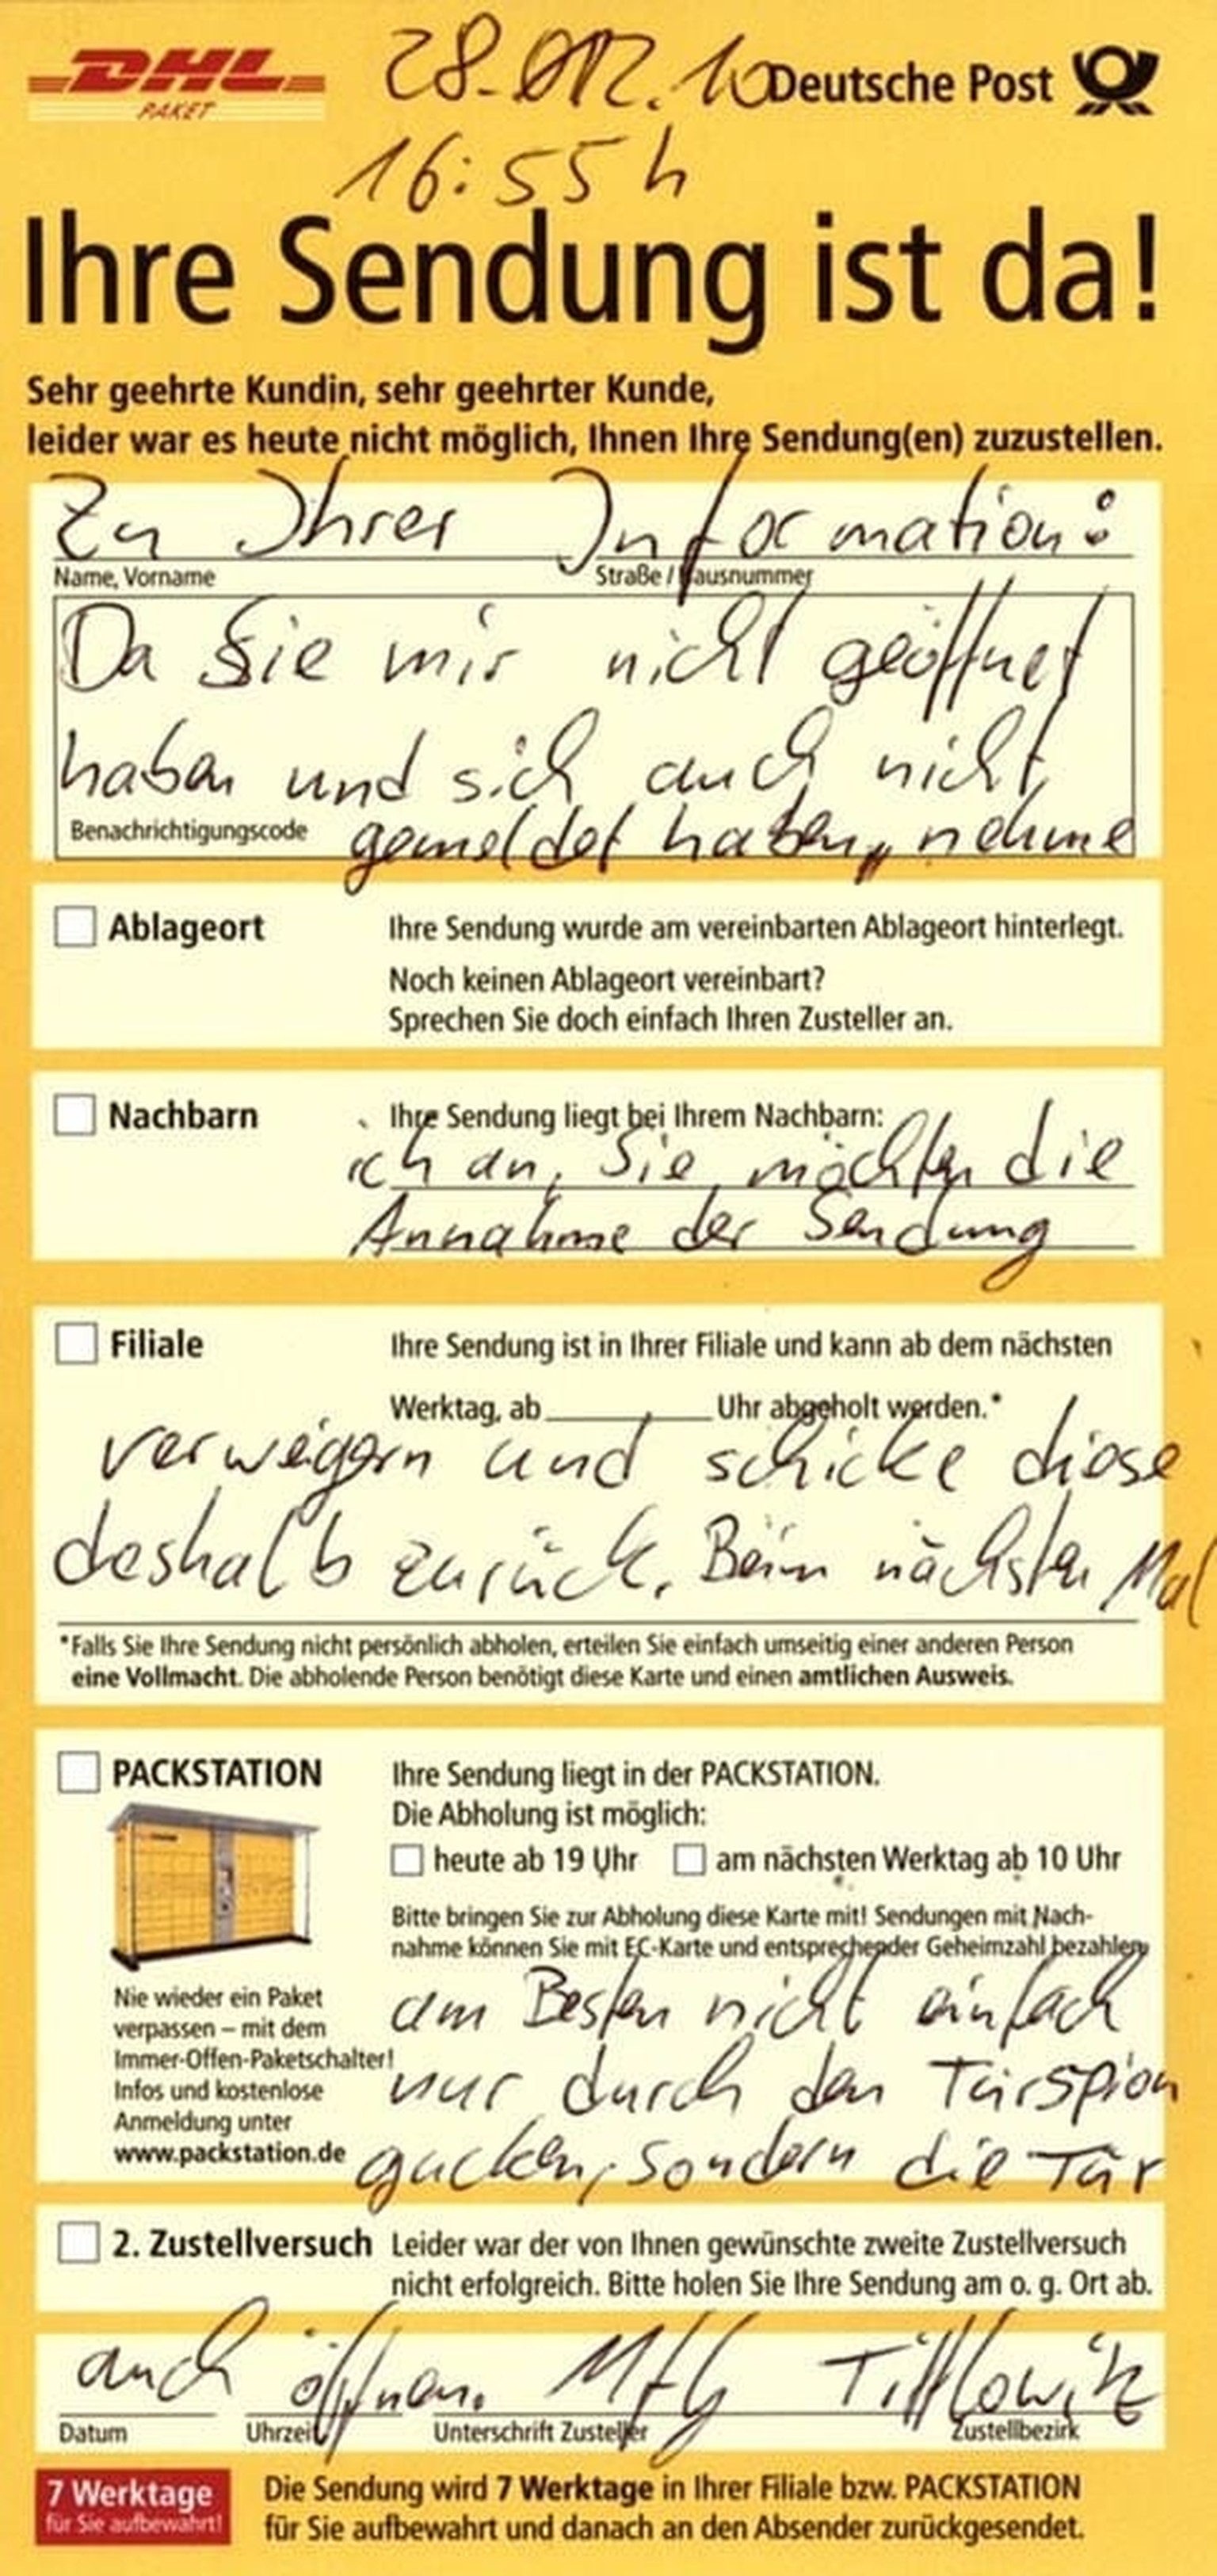 DHL
PAKET
28.12.10
Deutsche Post
16:55 h
Ihre Sendung ist da!
Sehr geehrte Kundin, sehr geehrter Kunde,
leider war es heute nicht möglich, Ihnen Ihre Sendung(en) zuzustellen.
Zu Ihrer Information:
Name, Vorname Straße / Hausnummer
Da Sie mir nicht geöffnet
haben und sich auch nicht
Benachrichtigungscode gemeldet haben, nehme
Ablageort Ihre Sendung wurde am vereinbarten Ablageort hinterlegt.
Noch keinen Ablageort vereinbart?
Sprechen Sie doch einfach Ihren Zusteller an.
Nachbarn Ihre Sendung liegt bei Ihrem Nachbarn:
ich an, Sie möchten die
Annahme der Sendung
Filiale Ihre Sendung ist in Ihrer Filiale und kann ab dem nächsten
Werktag, ab Uhr abgeholt werden.*
verweigern und schicke diese
deshalb zurück. Beim nächsten Mal
*Falls Sie Ihre Sendung nicht persönlich abholen, erteilen Sie einfach umseitig einer anderen Person
eine Vollmacht. Die abholende Person benötigt diese Karte und einen amtlichen Ausweis.
PACKSTATION Ihre Sendung liegt in der PACKSTATION.
Die Abholung ist möglich:
heute ab 19 Uhr am nächsten Werktag ab 10 Uhr
Bitte bringen Sie zur Abholung diese Karte mit! Sendungen mit Nach-
nahme können Sie mit EC-Karte und entsprechender Geheimzahl bezahlen.
Nie wieder ein Paket
verpassen – mit dem
Immer-Offen-Paketschalter!
Infos und kostenlose
Anmeldung unter
www.packstation.de
am Besten nicht einfach
nur durch den Türspion
gucken, sondern die Tür
2. Zustellversuch Leider war der von Ihnen gewünschte zweite Zustellversuch
nicht erfolgreich. Bitte holen Sie Ihre Sendung am o. g. Ort ab.
auch öffnen. MfG Tittlowitz
Datum Uhrzeit Unterschrift Zusteller Zustellbezirk
7 Werktage
für Sie aufbewahrt!
Die Sendung wird 7 Werktage in Ihrer Filiale bzw. PACKSTATION
für Sie aufbewahrt und danach an den Absender zurückgesendet.